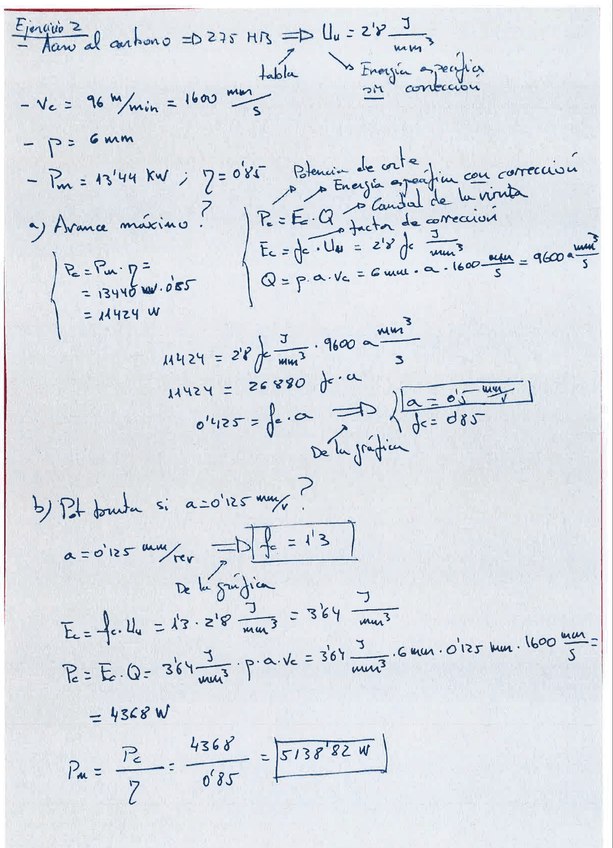 Ejercicio 2
- Acero al carbono => 275 HB => Uu = 2'8 J/mm³
tabla
Energía específica
sin corrección
- Vc = 96 m/min = 1600 mm/s
- p = 6 mm
- Pm = 13'44 KW ; η = 0'85
a) Avance máximo?
Pc = Pm · η =
= 13440 W · 0'85
= 11424 W
Potencia de corte
Energía específica con corrección
Pc = Ec · Q
Caudal de la viruta
factor de corrección
Ec = fc · Uu = 2'8 fc J/mm³
Q = p · a · Vc = 6 mm · a · 1600 mm/s = 9600 a mm³/s
11424 = 2'8 fc J/mm³ · 9600 a mm³/s
11424 = 26880 fc · a
0'425 = fc · a => a = 0'5 mm/v
fc = 0'85
De la gráfica
b) Pot bruta si a = 0'125 mm/v?
a = 0'125 mm/rev => fc = 1'3
De la gráfica
Ec = fc · Uu = 1'3 · 2'8 J/mm³ = 3'64 J/mm³
Pc = Ec · Q = 3'64 J/mm³ · p · a · Vc = 3'64 J/mm³ · 6 mm · 0'125 mm · 1600 mm/s =
= 4368 W
Pm = Pc/η = 4368/0'85 = 5138'82 W